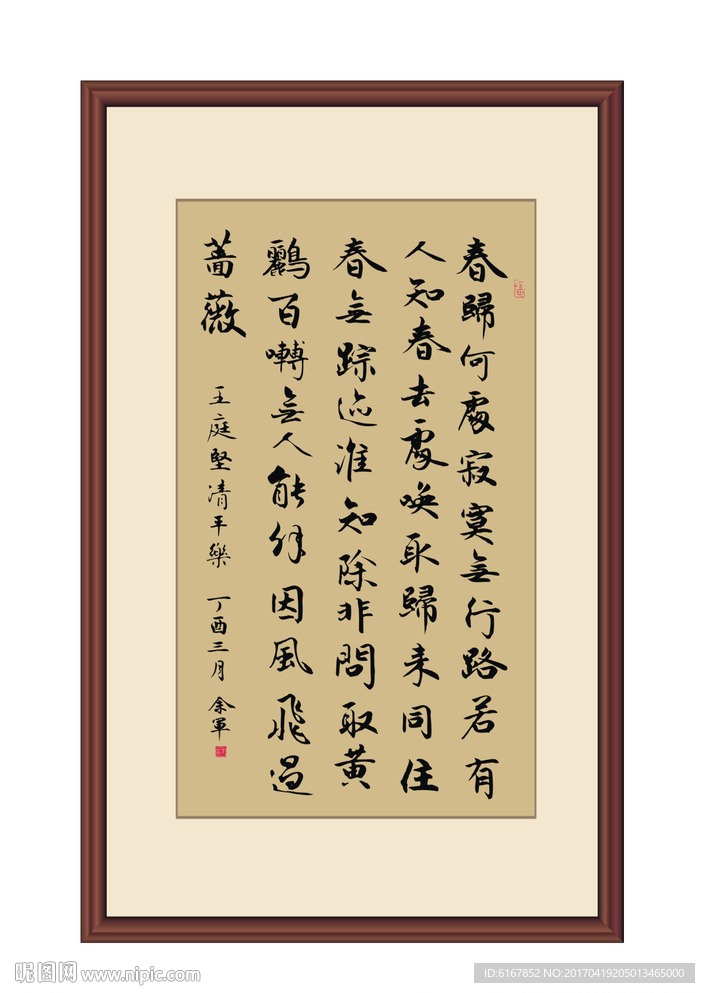 春歸何處寂寞無行路若有
人知春去處喚取歸来同住
春無踪迹谁知除非問取黃
鸝百囀無人能解因風飛過
薔薇
王庭堅清平樂 丁酉三月 余軍
昵图网 www.nipic.com
ID:6167852 NO:20170419205013465000